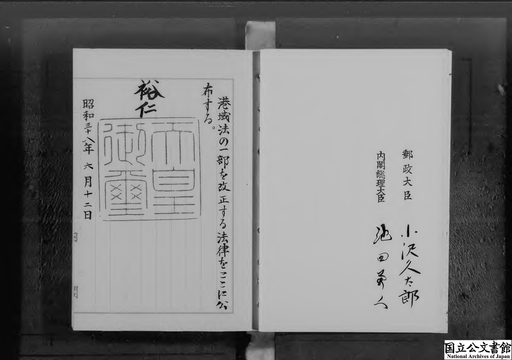 郵政大臣 小沢久太郎
内閣総理大臣 池田勇人
港域法の一部を改正する法律をここに公
布する。
裕仁
天皇
御璽
昭和三十八年六月十二日
国立公文書館
National Archives of Japan